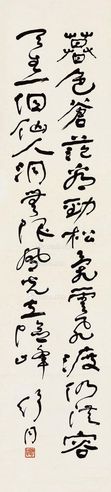 暮色蒼茫看勁松亂雲飛渡仍從容
天生一個仙人洞無限風光在險峰 舒同